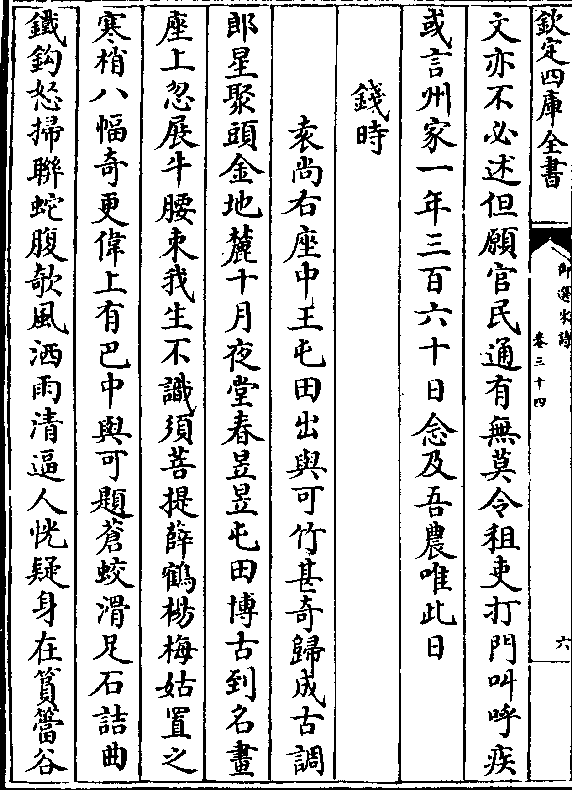 欽定四庫全書
御選宋詩
卷三十四
六
文亦不必述但願官民通有無莫令租吏打門叫呼疾
或言州家一年三百六十日念及吾農唯此日
錢時
袁尚右座中王屯田出與可竹甚奇歸成古調
郎星聚頭金地麓十月夜堂春昱昱屯田博古到名畫
座上忽展牛腰束我生不識須菩提薛鶴楊梅姑置之
寒梢八幅奇更偉上有巴中與可題蒼蛟滑足石詰曲
鐵鈎怒掃聯蛇腹欹風洒雨清逼人恍疑身在篔簹谷